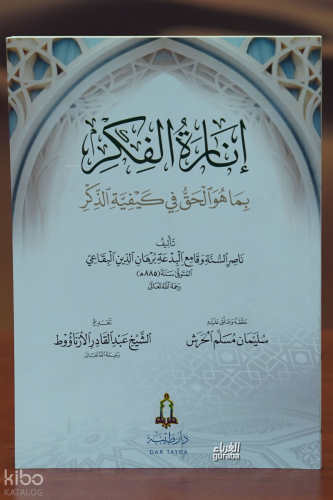 إنارة الفكر
بما هو الحق في كيفية الذكر
تأليف
ناصر السنة وقامع البدعة برهان الدين البقاعي
المتوفى سنة (٨٨٥هـ)
رحمه الله تعالى
حققه وعلق عليه
سليمان مسلم الحرش
تقديم
الشيخ عبد القادر الأرناؤوط
رحمه الله تعالى
دار طيبة
DAR TAYBA
الغرباء
guraba
kibo
KATALOG